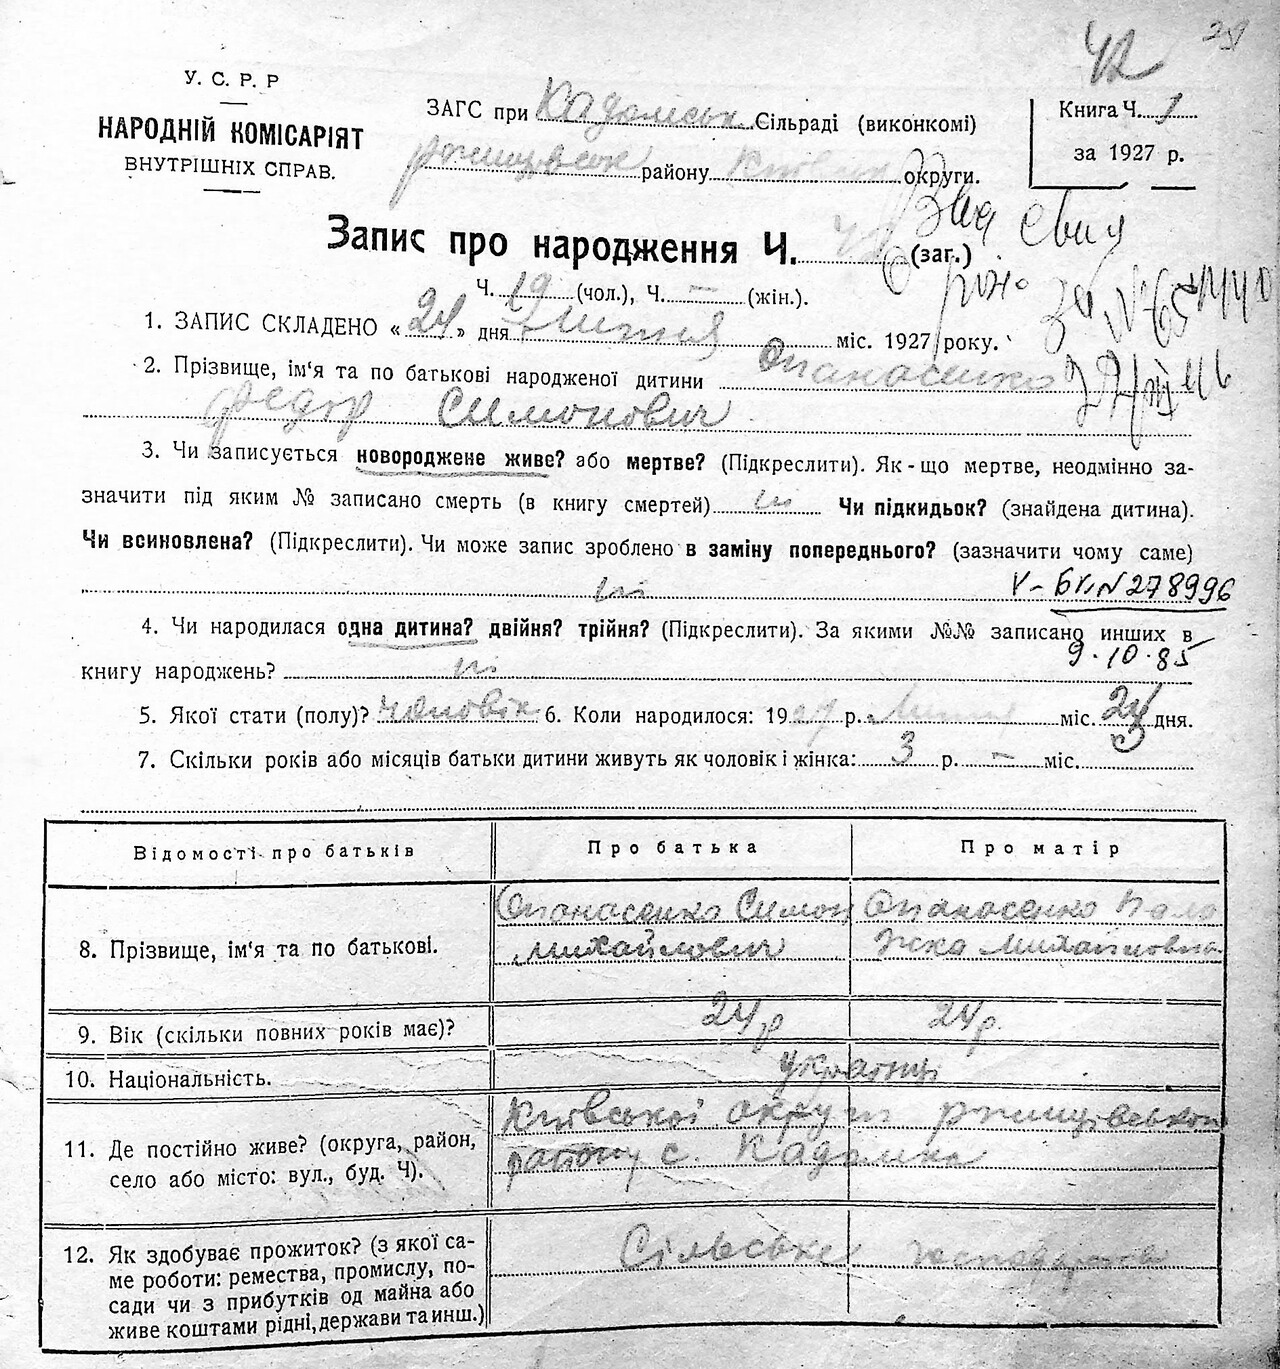 42
У. С. Р. Р
НАРОДНІЙ КОМІСАРІЯТ
ВНУТРІШНІХ СПРАВ.
ЗАГС при Кадомськ. Сільраді (виконкомі)
ржищівськ району Київськ округи.
Книга Ч. 1
за 1927 р.
Запис про народження Ч. 42 (заг.)
Ч. 19 (чол.), Ч. — (жін.).
1. ЗАПИС СКЛАДЕНО « 24 » дня Липня міс. 1927 року.
2. Прізвище, ім‘я та по батькові народженої дитини Опанасенко
Федор Симонович
3. Чи записується новороджене живе? або мертве? (Підкреслити). Як-що мертве, неодмінно за-
значити під яким № записано смерть (в книгу смертей) ні Чи підкидьок? (знайдена дитина).
Чи всиновлена? (Підкреслити). Чи може запис зроблено в заміну попереднього? (зазначити чому саме)
ні V-БК N 278996
4. Чи народилася одна дитина? двійня? трійня? (Підкреслити). За якими №№ записано инших в
9.10.85
книгу народжень? ні
5. Якої стати (полу)? чоловік 6. Коли народилося: 1927 р. Липня міс. 24 дня.
7. Скільки років або місяців батьки дитини живуть як чоловік і жінка: 3 р. — міс.
Відомості про батьків Про батька Про матір
8. Прізвище, ім‘я та по батькові. Опанасенко Симон Михайлович Опанасенко Пала жка Михайловна
9. Вік (скільки повних років має)? 24 р 24 р.
10. Національність. українці
11. Де постійно живе? (округа, район, село або місто: вул., буд. Ч). Київської округи ржищівськой району с. Кадомка
12. Як здобуває прожиток? (з якої са-
ме роботи: ремества, промислу, по-
сади чи з прибутків од майна або
живе коштами рідні, держави та инш.) Сільське господарство